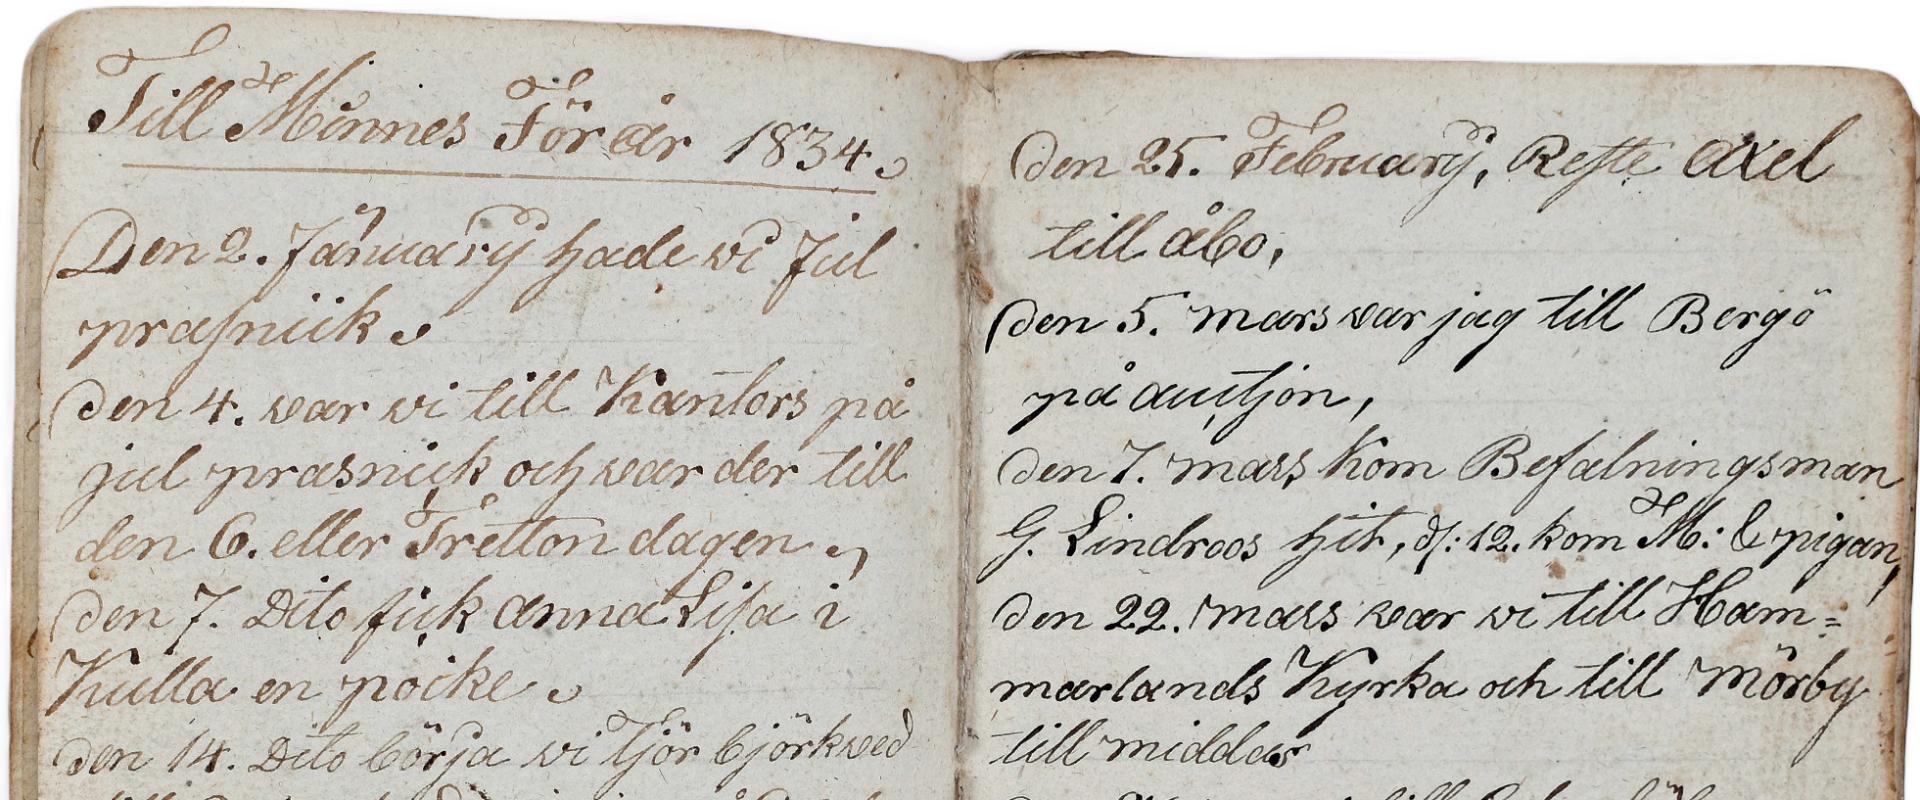 Till Minnes För år 1834.
Den 2. January hade vi Jul
prasniik.
den 4. var vi till Kantors på
jul prasnick och var der till
den 6. eller Tretton dagen.,
den 7. Dito fick anna Lisa i
Kulla en poike.
den 14. Dito börja vi kjör björkved
den 25. February, Reste Axel
till åbo,
den 5. mars var jag till Bergö
på auctjon,
den 7. mars kom Befalningsman
G. Lindroos hit, d/: 12. kom M: L pigan,
den 22. mars var vi till Ham=
marlands Kyrka och till Mörby
till middas